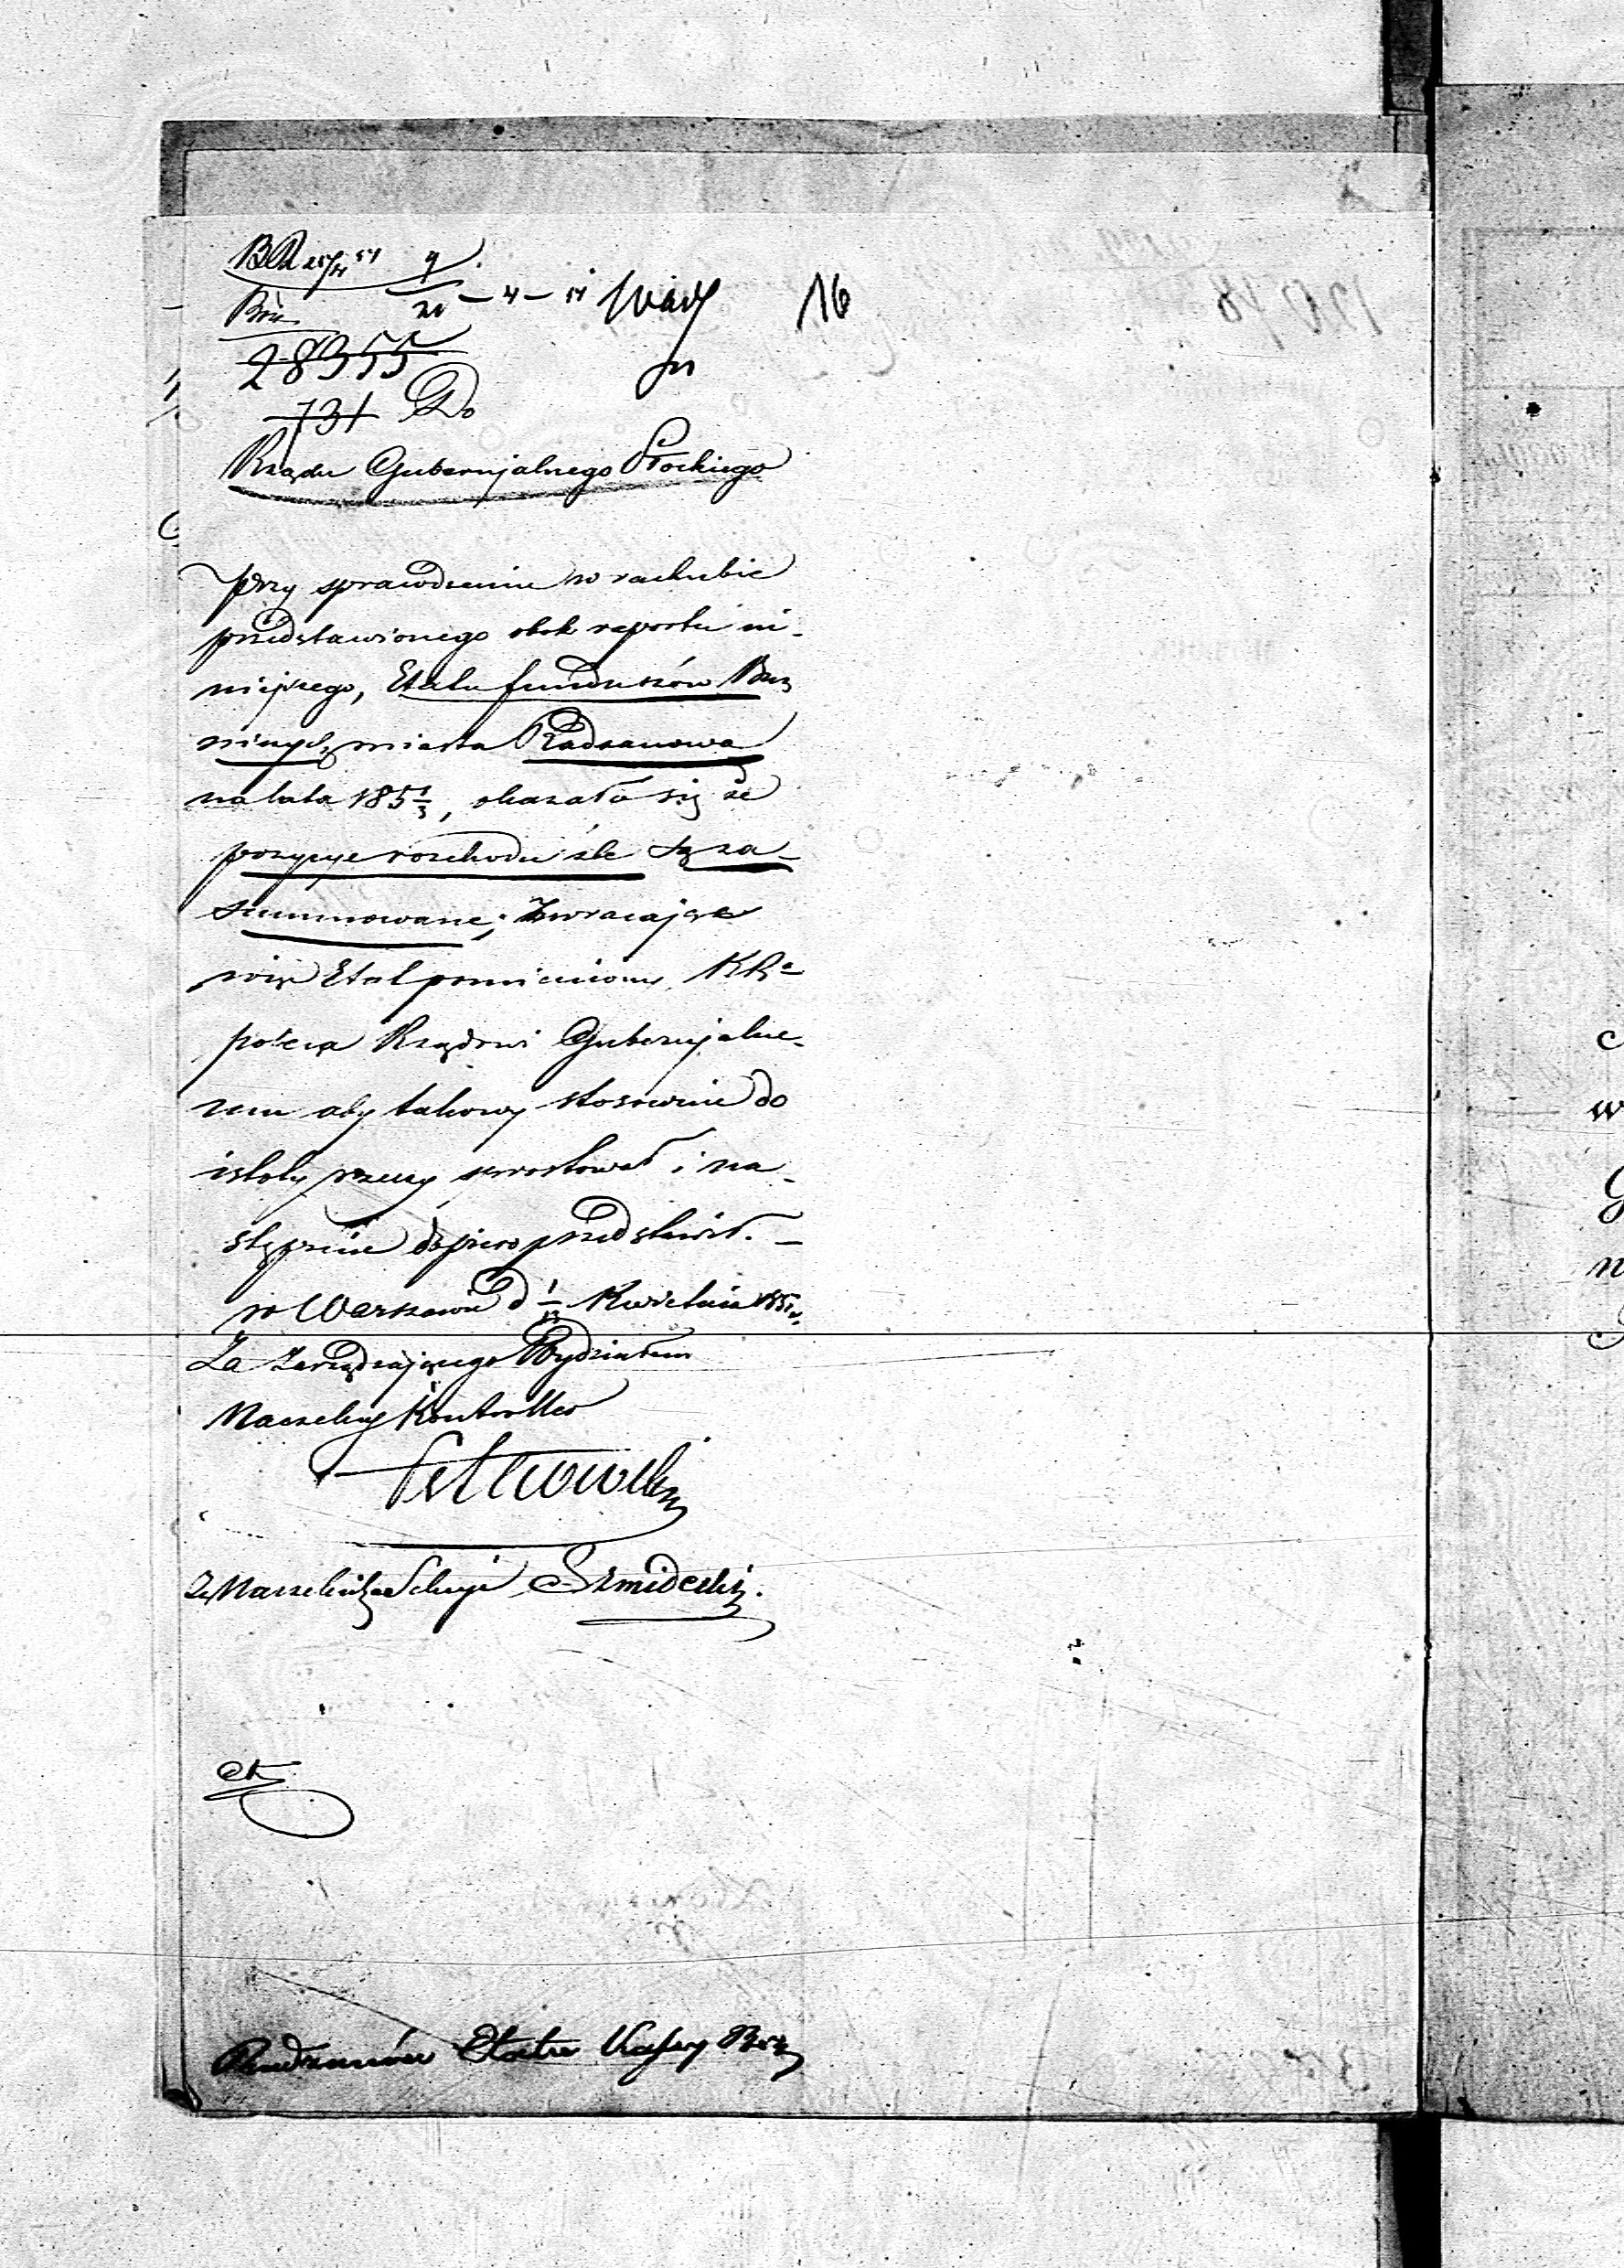 16
28355
731 Do
Rządu Gubernjalnego Płockiego
Przy sprawdzeniu w rachubie
przedstawionego obok raportu ni-
niejszego, Etatu funduszów Bóż
niczych miasta Radzanowa
na lata 185 1/3, okazało się że
pozycye rozchodu źle są za-
summowane; Zwracając
więc Etat pomieniony, KR
poleca Rządowi Gubernjalne-
mu aby takowy stosownie do
istoty rzeczy sprostował i na-
stępnie dopiero przedstawił. –
w Warszawie d 1/13 Kwietnia 1851 r.
Za Zarządzającego Wydziałem
Naczelny Kontroller
Z Naczelnika Sekcyi Szmidecki.
Radzanów Etata Kassy Bóż